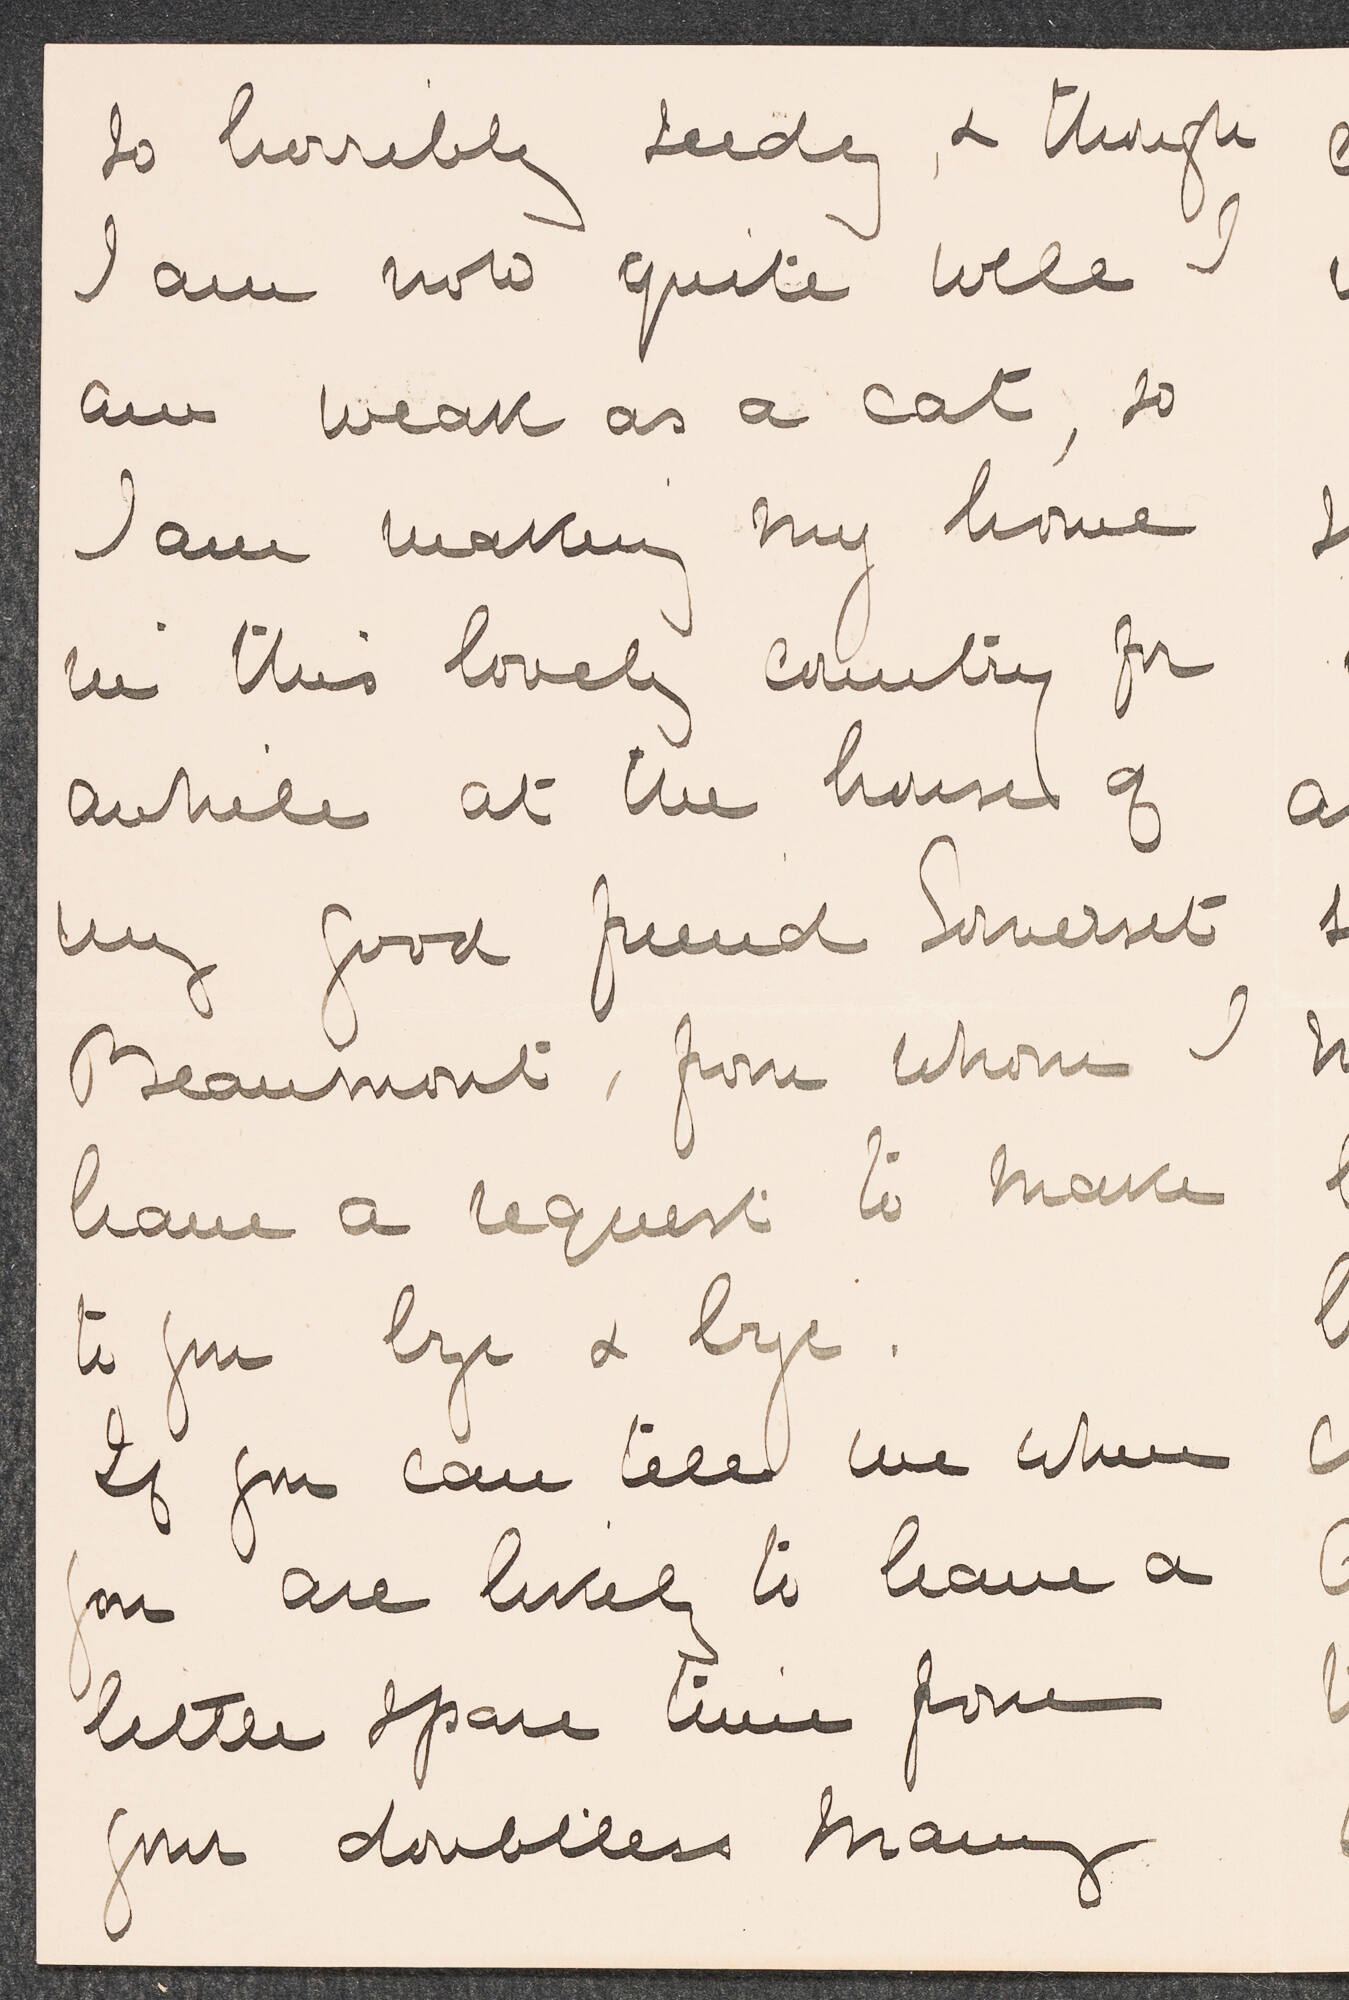 so horribly seedy, & though
I am now quite well I
am weak as a cat, so
I am making my home
in this lovely country for
awhile at the house of
my good friend Somerset
Beaumont, from whom I
have a request to make
to you bye & bye.
If you can tell me when
you are likely to have a
little spare time from
your doubtless many